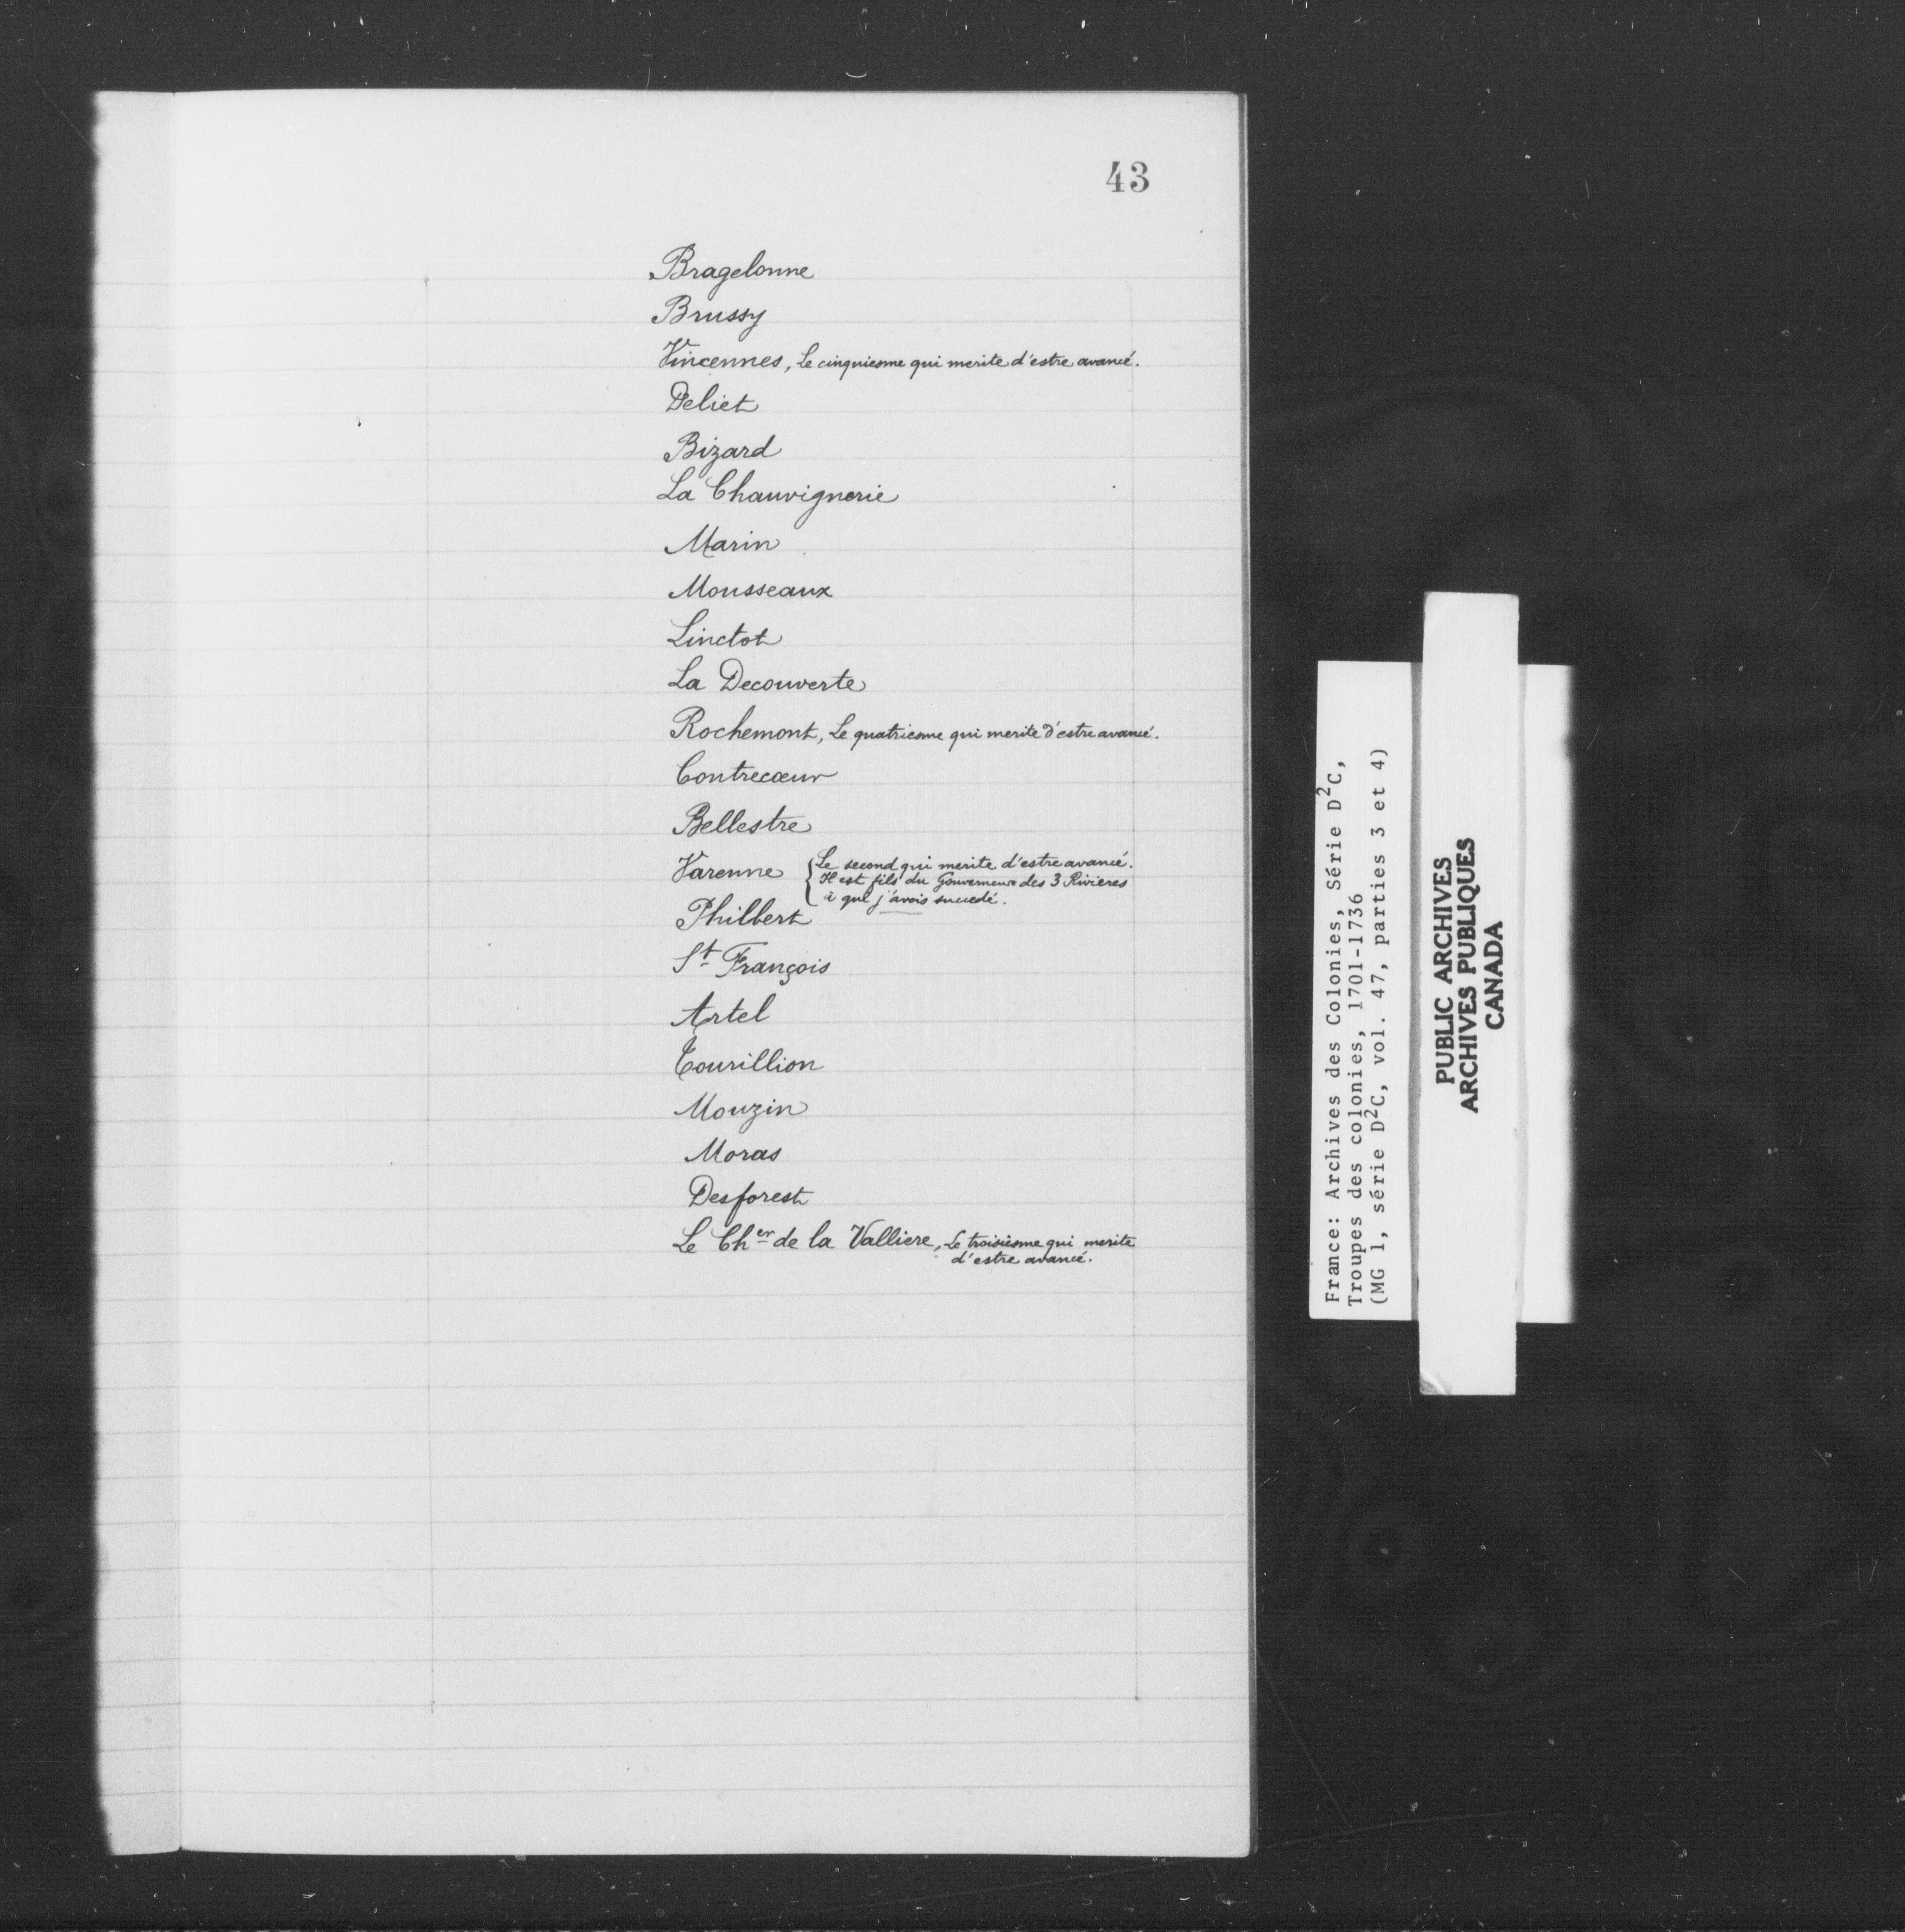 43
Bragelonne
Brussy
Vincennes, Le cinquiesme qui merite d'estre avancé.
Deliet
Bizard
La Chauvignerie
Marin
Mousseaux
Linctot
La Decouverte
Rochemont, Le quatriesme qui merite d'estre avancé.
Contrecœur
Bellestre
Varenne { Le second qui merite d'estre avancé.
Il est fils du Gouverneur des 3 Rivieres
à qui j'avois succedé.
Philbert
St François
Artel
Tourillion
Mouzin
Moras
Desforest
Le Cher de la Valliere, Le troisiesme qui merite
d'estre avancé.
France: Archives des Colonies, Série D²C,
Troupes des colonies, 1701-1736
(MG 1, série D²C, vol. 47, parties 3 et 4)
PUBLIC ARCHIVES
ARCHIVES PUBLIQUES
CANADA